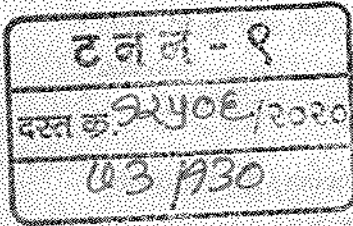 ट न न - १
दस्त क्र. १२५०६/२०२०
७३/१३०